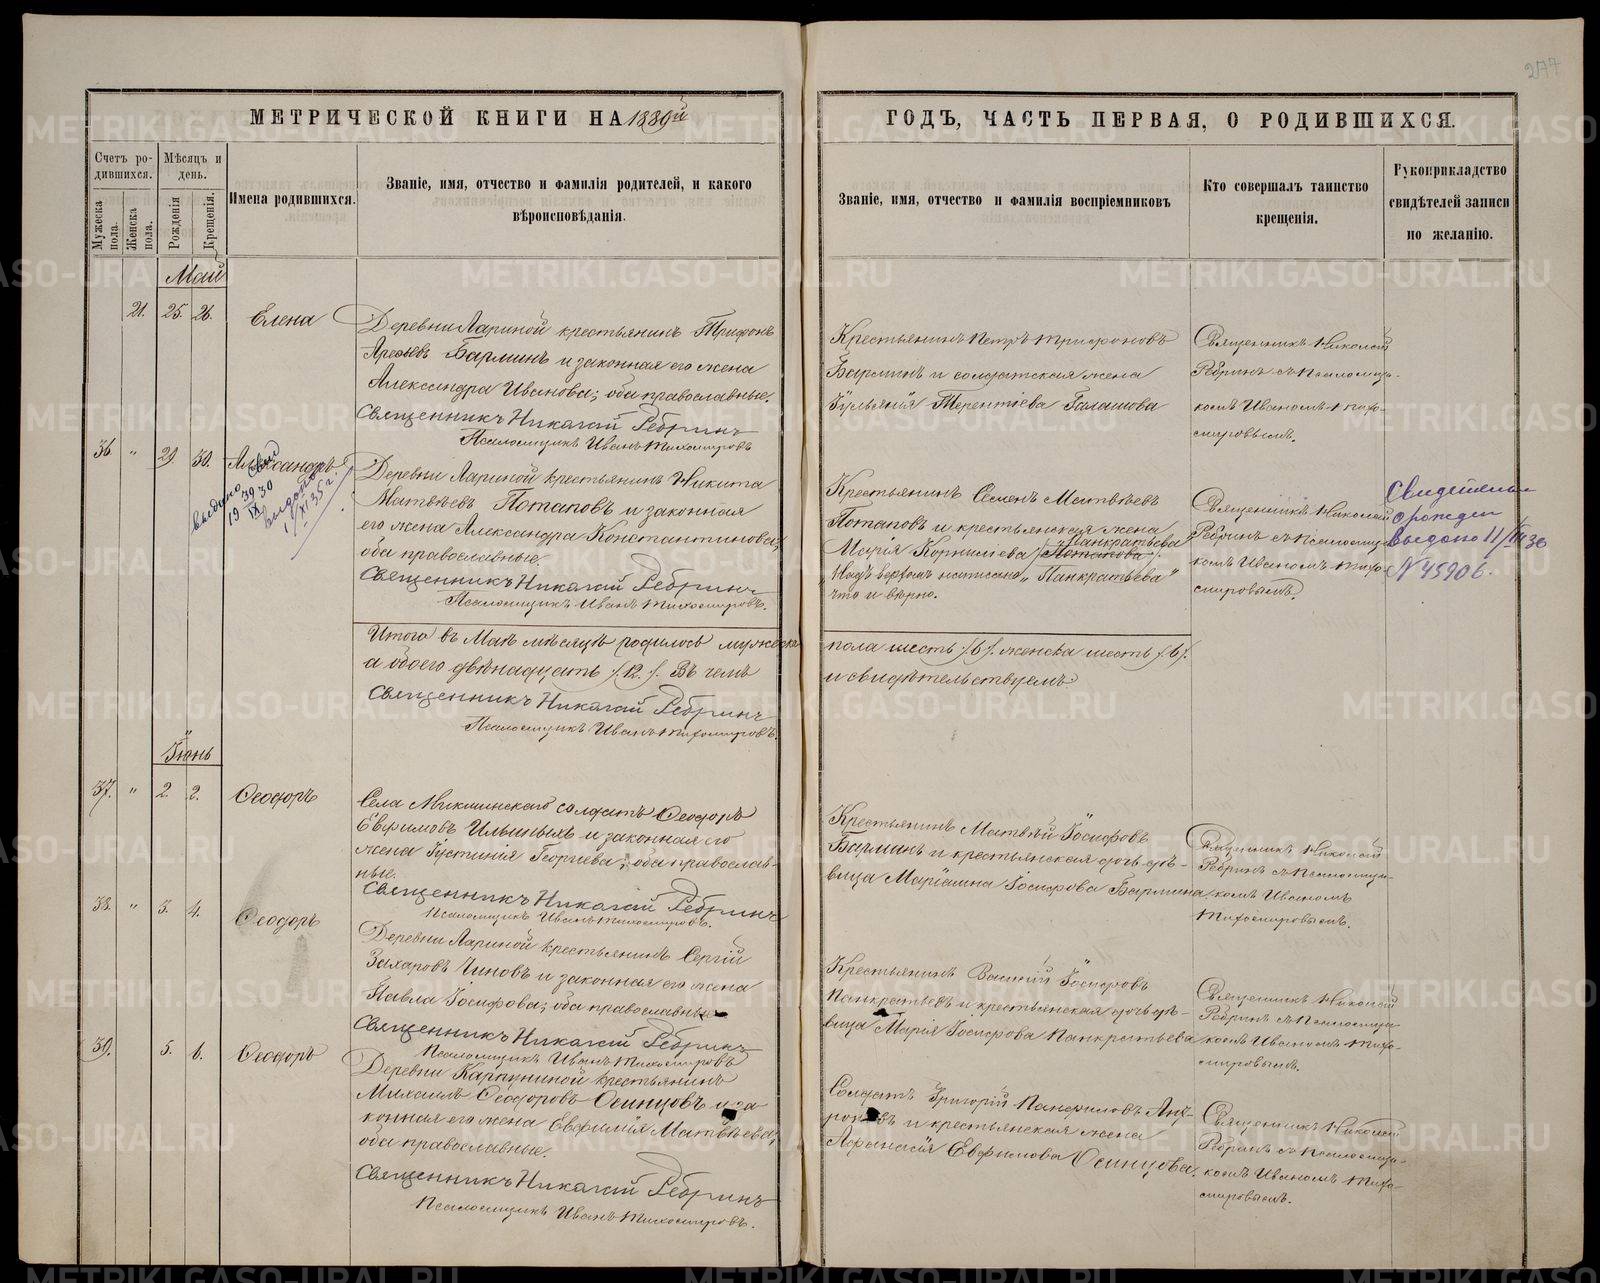 277
МЕТРИЧЕСКОЙ КНИГИ НА 1889й
ГОДЪ, ЧАСТЬ ПЕРВАЯ, О РОДИВШИХСЯ.
Счетъ ро-
дившихся.
Мужеска пола.
Женска пола.
Мѣсяцъ и
день.
Рожденія
Крещенія.
Имена родившихся.
Званіе, имя, отчество и фамилія родителей, и какого
вѣроисповѣданія.
Званіе, имя, отчество и фамилія воспріемниковъ
Кто совершалъ таинство
крещенія.
Рукоприкладство
свидѣтелей записи
по желанію.
Май
21. 25. 26.
Елена
Деревни Лариной крестьянинъ Трифонъ
Арефьевъ Барминъ и законная его жена
Александра Иванова; оба православные.
Священникъ Николай Ребринъ
Псаломщикъ Иванъ Тихомировъ
Крестьянинъ Петръ Трифоновъ
Барминъ и солдатская жена
Іульянія Терентіева Галашова
Священникъ Николай
Ребринъ съ Псаломщи-
комъ Иваномъ Тихо-
мировымъ.
36. " 29. 30.
Александръ
выдано
выдано
1/XI 35 г.
Деревни Лариной крестьянинъ Никита
Матвѣевъ Потаповъ и законная
его жена Александра Константинова;
оба православные.
Священникъ Николай Ребринъ
Псаломщикъ Иванъ Тихомировъ.
Крестьянинъ Семенъ Матвѣевъ
Потаповъ и крестьянская жена
Панкратьева
Марія Корниліева (Потапова).
Надъ верхомъ написано „Панкратьева"
что и вѣрно.
Священникъ Николай
Ребринъ съ Псаломщи-
комъ Иваномъ Тихо-
мировымъ.
Свидетельс
о рожден
выдано 11/III 36
N 45906.
Итого въ Маѣ мѣсяцѣ родилось мужеска
пола шесть /6/. женска шесть /6/.
а обоего двѣнадцать /12/. Въ чемъ
и свидѣтельствуемъ.
Священникъ Николай Ребринъ
Псаломщикъ Иванъ Тихомировъ.
Іюнь
37. " 2. 2.
Ѳеодоръ
Села Микшинскаго солдатъ Ѳеодоръ
Евфимовъ Ильиныхъ и законная его
жена Іустинія Георгіева; оба православ-
ные.
Священникъ Николай Ребринъ
Псаломщикъ Иванъ Тихомировъ.
Крестьянинъ Матвѣй Іосифовъ
Барминъ и крестьянская дочь дѣ-
вица Маріамна Іосифова Бармина
Священникъ Николай
Ребринъ съ Псаломщи-
комъ Иваномъ
Тихомировымъ.
38. " 3. 4.
Ѳеодоръ
Деревни Лариной крестьянинъ Сергій
Захаровъ Чиновъ и законная его жена
Павла Іосифова; оба православные
Священникъ Николай Ребринъ
Псаломщикъ Иванъ Тихомировъ
Крестьянинъ Василій Іосифовъ
Панкратьевъ и крестьянская дочь дѣ-
вица Марія Іосифова Панкратьева
Священникъ Николай
Ребринъ съ Псаломщи-
комъ Иваномъ Тихо-
мировымъ.
39. 5. 6.
Ѳеодоръ
Деревни Карпуниной крестьянинъ
Михаилъ Ѳеодоровъ Осинцовъ и за-
конная его жена Евфимія Матвѣева;
оба православные.
Священникъ Николай Ребринъ
Псаломщикъ Иванъ Тихомировъ.
Солдатъ Григорій Панфиловъ
и крестьянская жена
Афанасія Евфимова Осинцова.
Священникъ Николай
Ребринъ съ Псаломщи-
комъ Иваномъ Тихо-
мировымъ.
METRIKI.GASO-URAL.RU